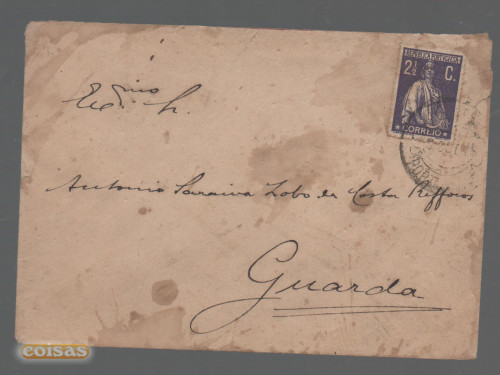 REPUBLICA PORTUGUESA
2½ C.
CORREIO
Ex.mo Sr.
Antonio Saraiva Lobo da Costa Reffoios
Guarda
coisas